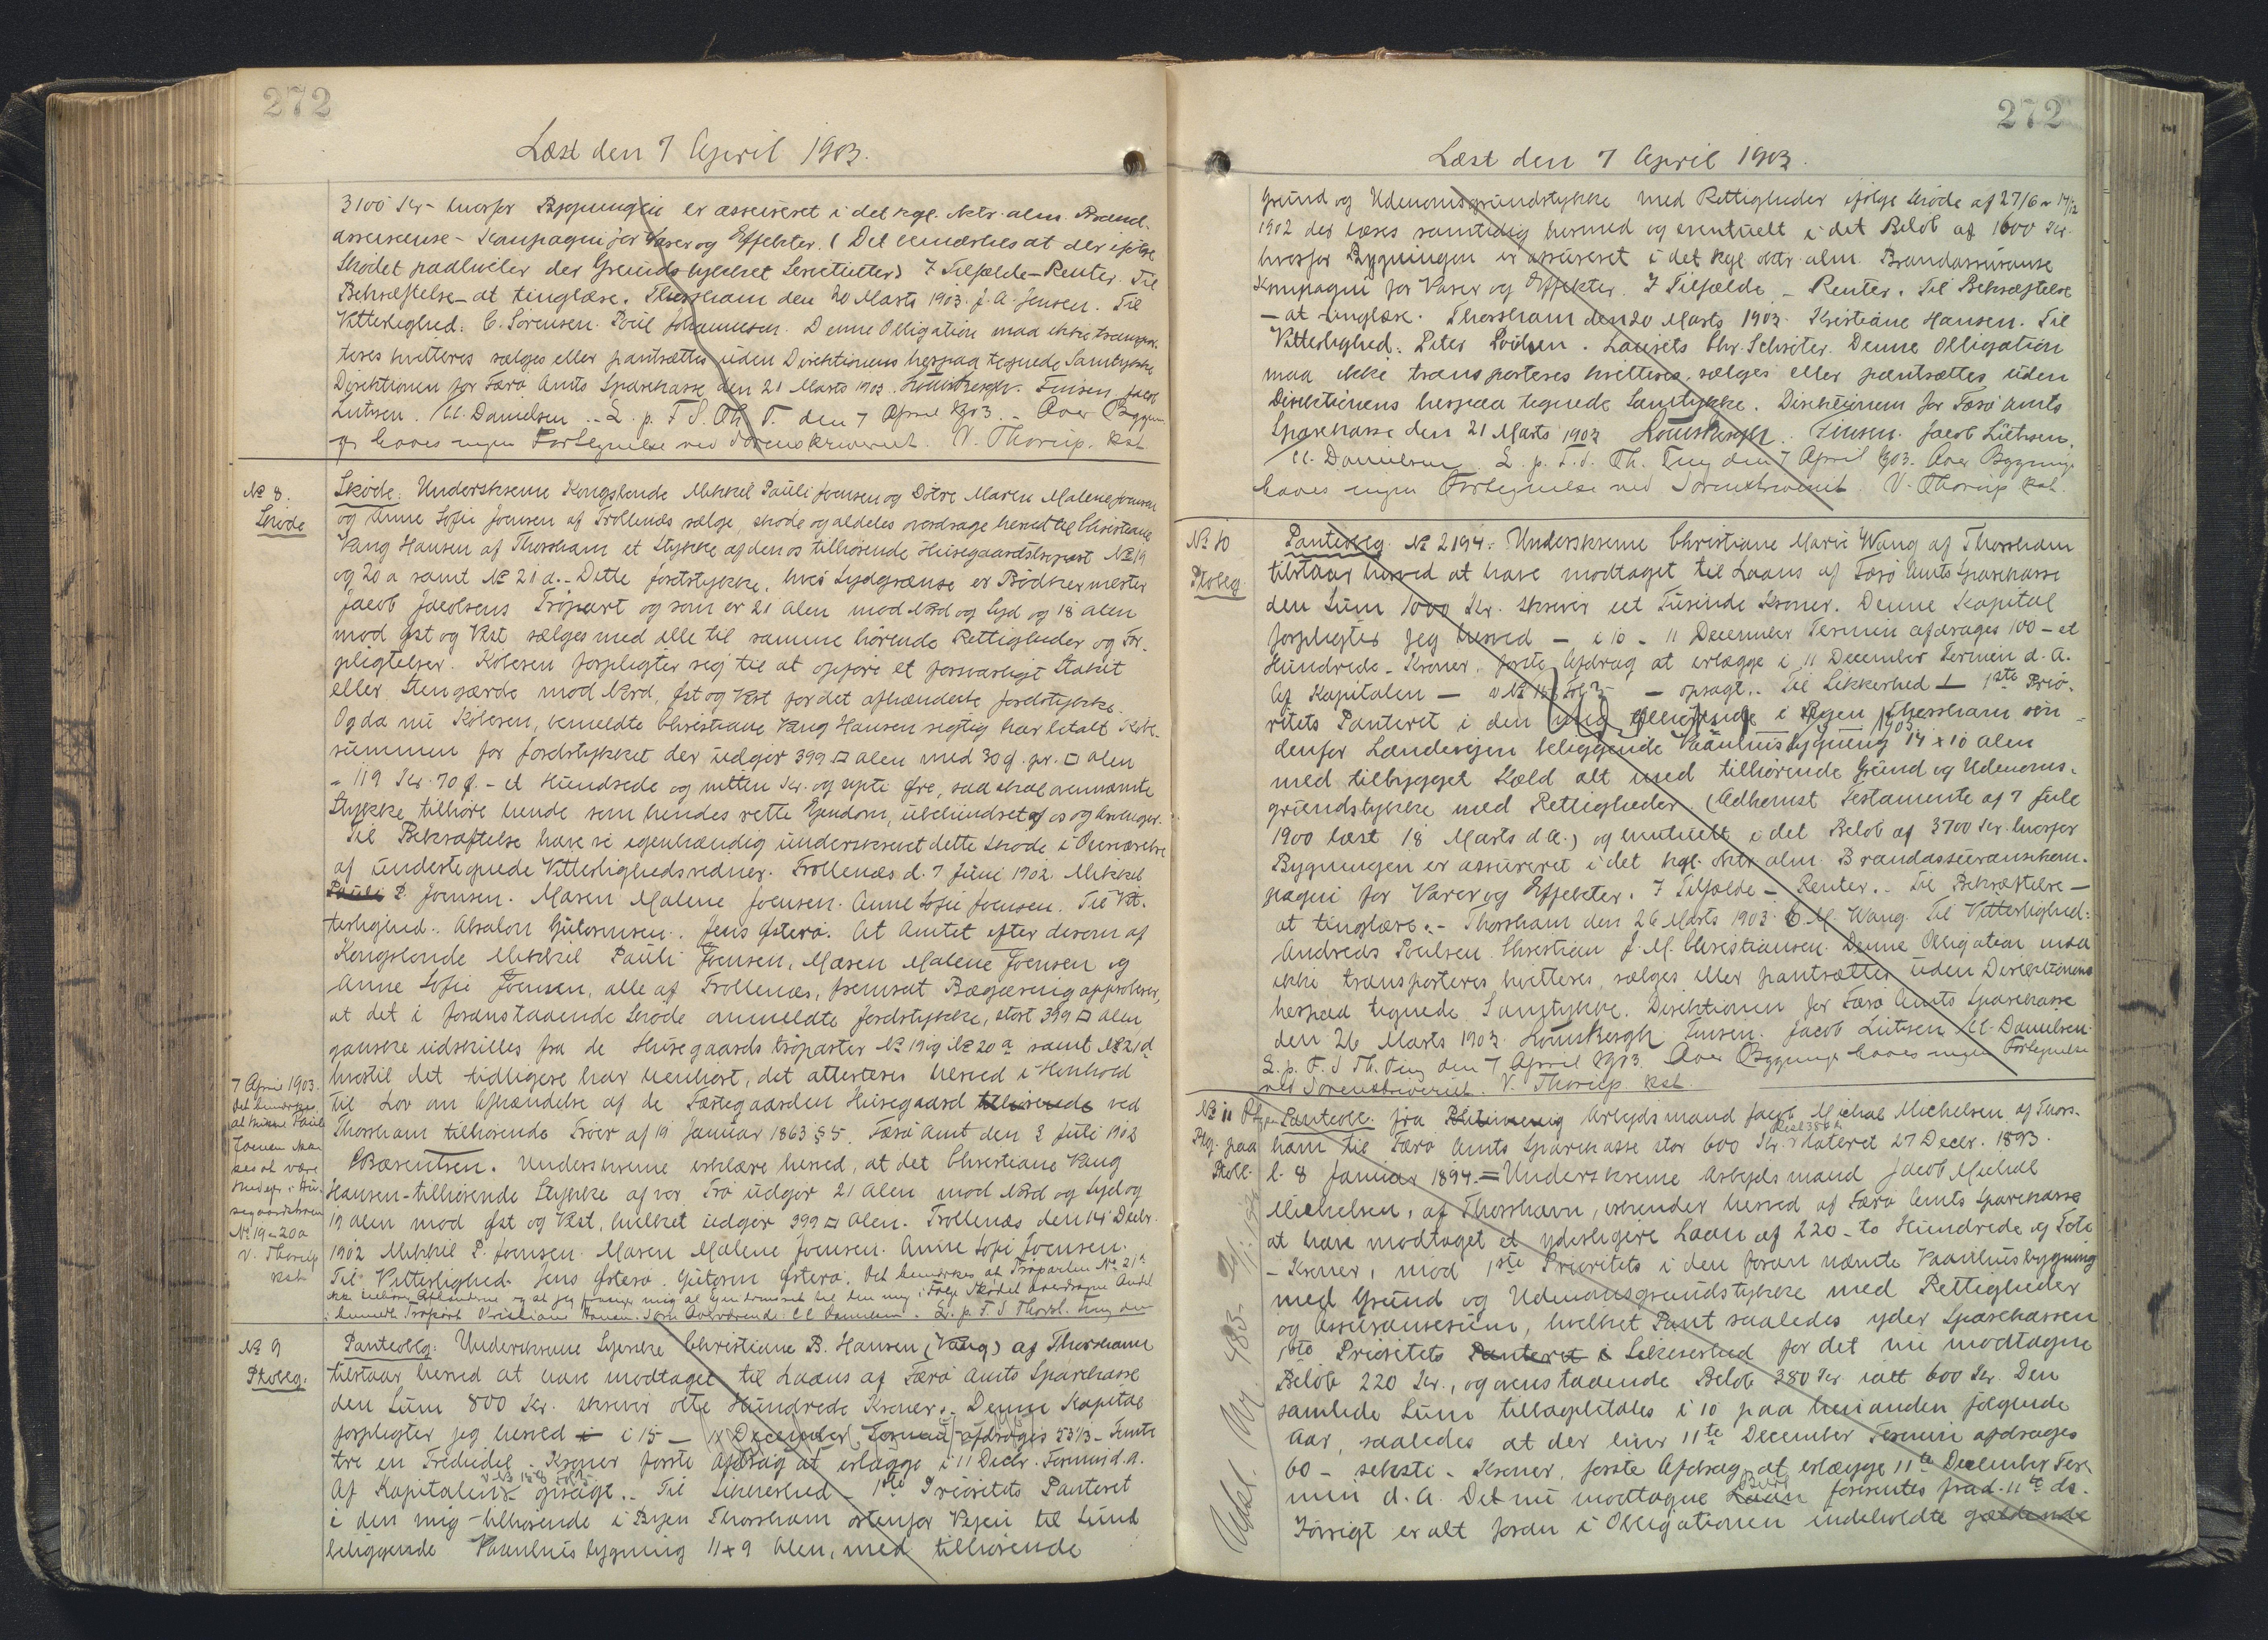 272
Læst den 7 April 1903.
3100 Kr. hvorfor Bygningen er assureret i det kgl. oktr. alm. Brand-
assurance-Kompagni for Varer og Effekter. (Det bemærkes at der ifølge
Skødet paahviler der Grundstykket Servitutter) I Tilfælde - Renter. Til
Bekræftelse - at tinglæse. Thorshavn den 20 Marts 1903. J. A. Jensen. Til
Vitterlighed: C. Sørensen. Poul Johannesen. Denne Obligation maa ikke transpor-
teres kvitteres sælges eller pantsættes uden Direktionens herpaa tegnede Samtykke
Direktionen for Færø Amts Sparekasse den 21 Marts 1903. Louis Bergh. Finsen. Jacob
Lützen. M. Danielsen. L. p. F. S. Th. T. den 7 April 1903. - Over Bygnin-
gen haves ingen Fortegnelse ved Sorenskriveriet. V. Thorup. kst
№ 8.
Skøde
Skøde. Underskrevne Kongsbonde Mikkel Pauli Joensen og Døtre Maren Malene Joensen
og Anne Sofie Joensen af Trollenæs sælge, skøde og aldeles overdrage herved til Christiane
Vang Hansen af Thorshavn et Stykke af den os tilhørende Húsegaardstrøpart № 19
og 20 a samt № 21 d. - Dette Jordstykke, hvis Sydgrænse er Bødkermester
Jacob Jacobsens Trøpart og som er 21 Alen mod Nord og Syd og 18 Alen
mod Øst og Vest sælges med alle til samme hørende Rettigheder og For-
pligtelser. Køberen forpligter sig til at opføre et forsvarligt Stakit
eller Stengærde mod Nord, Øst og Vest for det afhændede Jordstykke.
Og da nu Køberen, bemeldte Christiane Vang Hansen rigtig har betalt Købe-
summen for Jordstykket der udgør 399 □ Alen med 30 Ø. pr. □ Alen
= 119 Kr. 70 Ø. - et Hundrede og nitten Kr. og sytti Øre, saa skal ovennævnte
Stykke tilhøre hende som hendes rette Ejendom, ubehindret af os og Arvinger.
Til Bekræftelse have vi egenhændig underskrevet dette Skøde i Overværelse
af undertegnede Vitterlighedsvidner. Trollenæs d. 7 Juni 1902. Mikkel
Pauli P. Joensen. Maren Malene Joensen. Anne Sofie Joensen. Til Vit-
terlighed. Absalon Guttormsen. Jens Østerø. At Amtet efter derom af
Kongsbonde Mikkel Pauli Joensen, Maren Malene Joensen og
Anne Sofie Joensen, alle af Trollenæs, fremsat Begæring approberer,
at det i foranstaaende Skøde ommeldte Jordstykke, stort 399 □ Alen
ganske udskilles fra de Húsegaards trøparter № 19 og № 20 a samt № 21 d
hvortil det tidligere har henhørt, det attesteres herved i Henhold
til Lov om Afhændelse af de Fæstegaarden Húsegaard tilhørende ved
Thorshavn tilhørende Trøer af 19 Januar 1863 § 5. Færø Amt den 2 Juli 1902
C Bærentsen. Underskrevne erklære herved, at det Christiane Vang
Hansen - tilhørende Stykke af vor Trø udgør 21 Alen mod Nord og Syd og
19 Alen mod Øst og Vest, hvilket udgør 399 □ Alen. Trollenæs den 14 Decbr.
1902 Mikkel P. Joensen. Maren Malene Joensen. Anne Sofie Joensen.
Til Vitterlighed. Jens Østerø. Guttorm Østerø. Det bemærkes at Trøparten № 21 d
ikke tilhører Afhænderne og at jeg forpligter mig at
i bemeldte Trøpart Kristiane Hansen. Som Overværende: M Danielsen. L. p. F. S Thorsh. Ting den
7 April 1903.
Det bemærkes,
at Mikkel Pauli
Joensen
ses at være
Skødeejer i Hú-
segaardstrøen
№ 19 - 20 a
V. Thorup
kst
№ 9
Ptoblg.
Panteoblg. Underskrevne Syerske Christiane B. Hansen (Vang) af Thorshavn
tilstaar herved at have modtaget til Laans af Færø Amts Sparekasse
den Sum 800 Kr. skriver otte Hundrede Kroner. - Denne Kapital
forpligter jeg herved i i 15 - 11 December Termin afdrages 53 1/3 - Femti
tre en Trediedel - Kroner første Afdrag at erlægge i 11 Decbr. Termin d. A.
Af Kapitalen - opsagt. - Til Sikkerhed - 1ste Prioritets Panteret
i den mig - tilhørende i Byen Thorshavn østenfor Vejen til Sund
beliggende Vaaningshusbygning 11 x 9 Alen, med tilhørende
272
Læst den 7 April 1903.
Grund og Udenomsgrundstykke med Rettigheder ifølge Skøde af 27/6 & 14/12
1902 der læses samtidig hermed og eventuelt i det Beløb af 1600 Kr.
hvorfor Bygningen er assureret i det kgl. oktr. alm. Brandassurance
Kompagni for Varer og Effekter. I Tilfælde - Renter. Til Bekræftelse
- at tinglæse. Thorshavn den 20 Marts 1903. Kristiane Hansen. Til
Vitterlighed: Peter Poulsen. Laurits Chr. Schrøter. Denne Obligation
maa ikke transporteres kvitteres, sælges eller pantsættes uden
Direktionens herpaa tegnede Samtykke. Direktionen for Færø Amts
Sparekasse den 21 Marts 1903 Louis Bergh. Finsen. Jacob Lützen.
M. Danielsen. L. p. F. S. Th. Ting den 7 April 1903. Over Bygningen
haves ingen Fortegnelse ved Sorenskriveriet. V. Thorup kst.
№ 10
Ptoblg.
Panteoblg. № 2194. Underskrevne Christiane Marie Wang af Thorshavn
tilstaar herved at have modtaget til Laans af Færø Amts Sparekasse
den Sum 1000 Kr. skriver eet Tusinde Kroner. Denne Kapital
forpligter jeg herved - i 10 - 11 December Termin afdrages 100 - et
Hundrede - Kroner, første Afdrag at erlægge i 11 December Termin d. A.
Af Kapitalen - - opsagt. Til Sikkerhed - 1ste Prio-
ritets Panteret i den mig tilhørende i Byen Thorshavn søn-
denfor Landevejen beliggende Vaaningshusbygning 14 x 10 Alen
med tilbygget Kæld alt med tilhørende Grund og Udenoms-
grundstykke med Rettigheder. (Adkomst Testamente af 7 Juli
1900 læst 18 Marts d. A.) og eventuelt i det Beløb af 3700 Kr. hvorfor
Bygningen er assureret i det kgl. oktr. alm. Brandassurancekom-
pagni for Varer og Effekter. I Tilfælde - Renter. - Til Bekræftelse -
at tinglæse. - Thorshavn den 26 Marts 1903. C. M. Wang. Til Vitterlighed:
Andreas Poulsen. Christian J. M. Christiansen. Denne Obligation maa
ikke transporteres, kvitteres, sælges eller pantsættes uden Direktionens
herpaa tegnede Samtykke. Direktionen for Færø Amts Sparekasse
den 26 Marts 1903. Louis Bergh Finsen. Jacob Lützen M. Danielsen.
L. p. F. S Th. Ting den 7 April 1903. Over Bygningen haves ingen Fortegnelse
ved Sorenskriveriet. V. Thorup kst.
№ 11
Ptg. paa
Ptobl.
Panteobl. fra Arbejdsmand Jacob Michal Michelsen af Thors-
havn til Færø Amts Sparekasse stor 600 Kr. dateret 27 Decbr. 1893.
l. 8 Januar 1894. = Underskrevne Arbejdsmand Jacob Michal
Michelsen, af Thorshavn, erkender herved af Færø Amts Sparekasse
at have modtaget et yderligere Laan af 220 - to Hundrede og Tyve
- Kroner, mod 1ste Prioritets i den foran nævnte Vaaningshusbygning
med Grund og Udenomsgrundstykke med Rettigheder
og Assurancesum, hvilket Pant saaledes yder Sparekassen
1ste Prioritets Panteret i Sikkerhed for det nu modtagne
Beløb 220 Kr., og ovenstaaende Beløb 380 Kr ialt 600 Kr. Den
samlede Sum tilbagebetales i 10 paa hinanden følgende
Aar, saaledes at der hver 11te December Termin afdrages
60 - seksti - Kroner, første Afdrag at erlægge 11te December Ter-
min d. A. Det nu modtagne Laan Beløb forrentes fra d. 11te ds.
Iøvrigt er alt foran i Obligationen indeholdte gældende